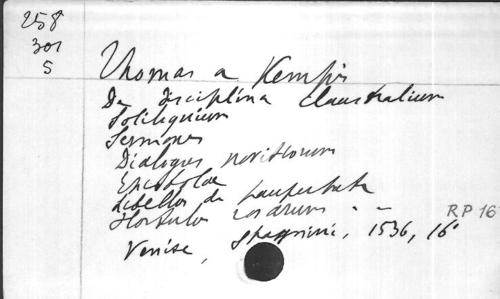 258
301
5
Thomas a Kempis
De disciplina claustralium
Soliloquium
Sermones
Dialogus novitiorum
Epistolae
Libellos de paupertate
Hortulos rosarum - -
RP 16
Venise, , 1536, 16°